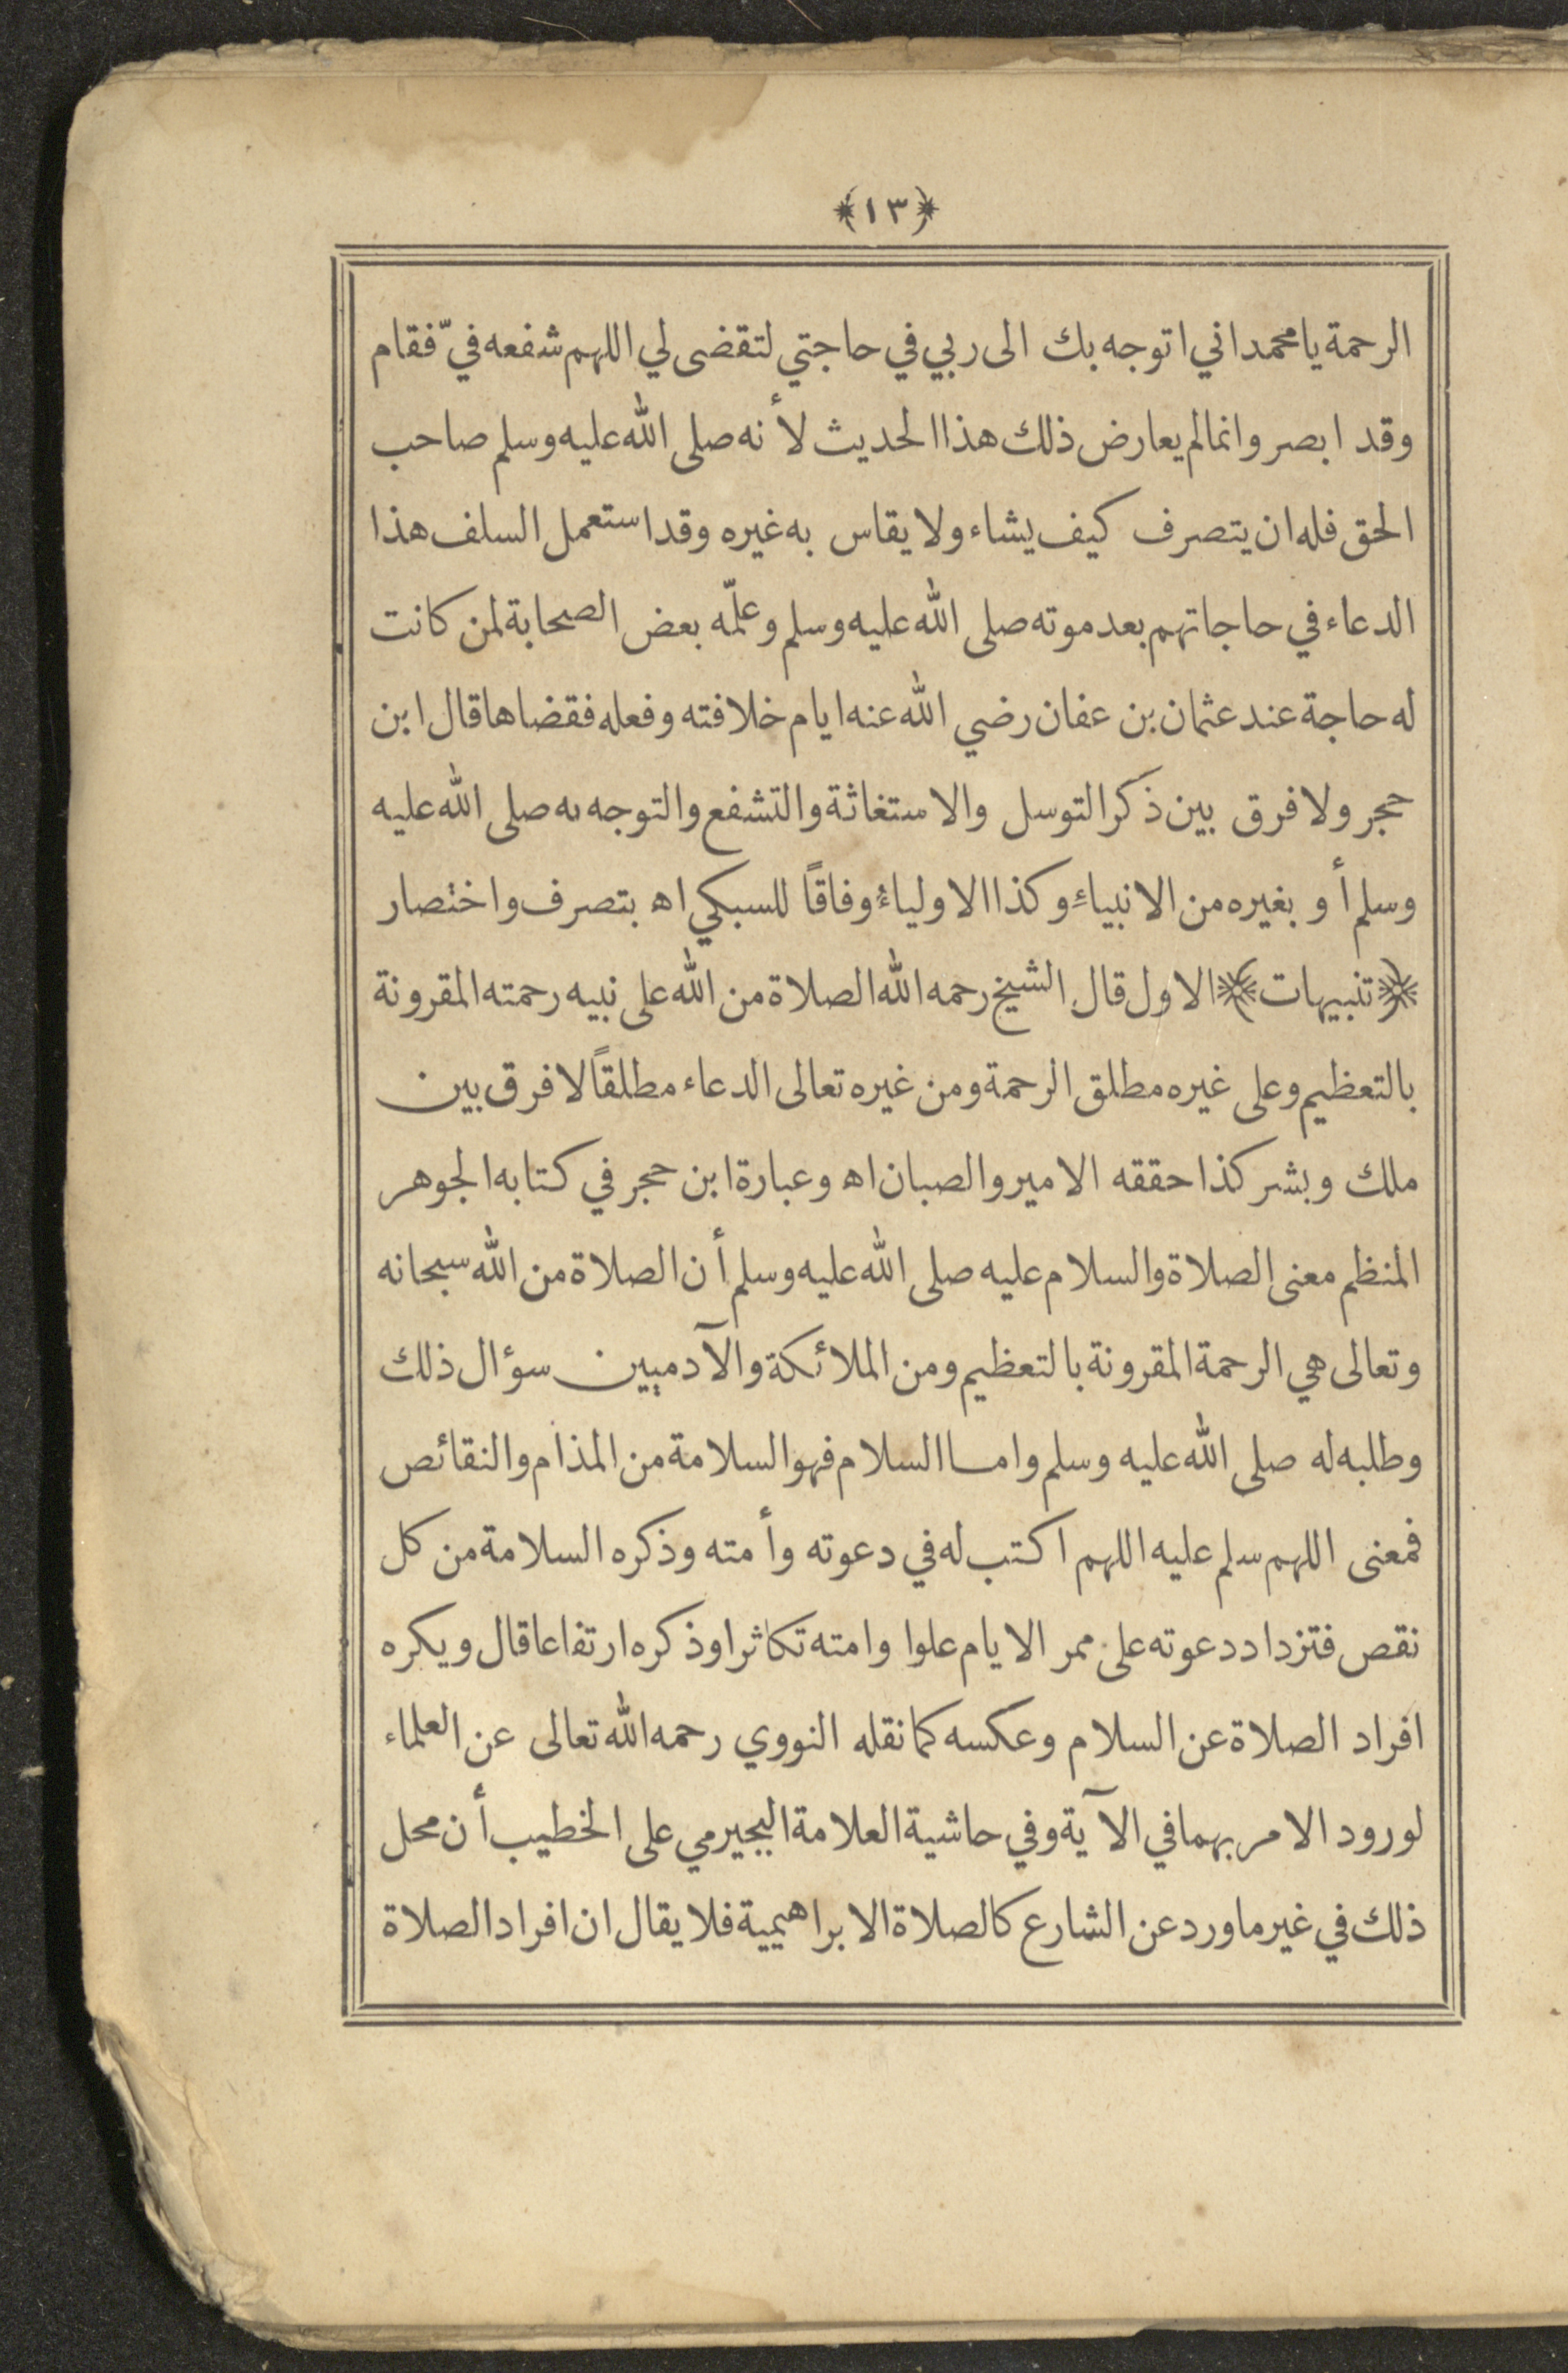 ﴿١٣﴾
الرحمة يا محمد اني اتوجه بك الى ربي في حاجتي لتقضى لي اللهم شفعه فيّ فقام
وقد ابصر وانما لم يعارض ذلك هذا الحديث لأنه صلى الله عليه وسلم صاحب
الحق فله ان يتصرف كيف يشاء ولا يقاس به غيره وقد استعمل السلف هذا
الدعاء في حاجاتهم بعد موته صلى الله عليه وسلم وعلّمه بعض الصحابة لمن كانت
له حاجة عند عثمان بن عفان رضي الله عنه ايام خلافته وفعله فقضاها قال ابن
حجر ولا فرق بين ذكر التوسل والاستغاثة والتشفع والتوجه به صلى الله عليه
وسلم أو بغيره من الانبياءِ وكذا الاولياءُ وفاقاً للسبكي اه بتصرف واختصار
﴿تنبيهات﴾ الاول قال الشيخ رحمه الله الصلاة من الله على نبيه رحمته المقرونة
بالتعظيم وعلى غيره مطلق الرحمة ومن غيره تعالى الدعاء مطلقاً لا فرق بين
ملك وبشر كذا حققه الامير والصبان اه وعبارة ابن حجر في كتابه الجوهر
المنظم معنى الصلاة والسلام عليه صلى الله عليه وسلم أن الصلاة من الله سبحانه
وتعالى هي الرحمة المقرونة بالتعظيم ومن الملائكة والآدميين سؤال ذلك
وطلبه له صلى الله عليه وسلم واما السلام فهو السلامة من المذام والنقائص
فمعنى اللهم سلم عليه اللهم اكتب له في دعوته وأمته وذكره السلامة من كل
نقص فتزداد دعوته على ممر الايام علوا وامته تكاثرا وذكره ارتفاعا قال ويكره
افراد الصلاة عن السلام وعكسه كما نقله النووي رحمه الله تعالى عن العلماء
لورود الامر بهما في الآية وفي حاشية العلامة البجيرمي على الخطيب أن محل
ذلك في غير ما ورد عن الشارع كالصلاة الابراهيمية فلا يقال ان افراد الصلاة